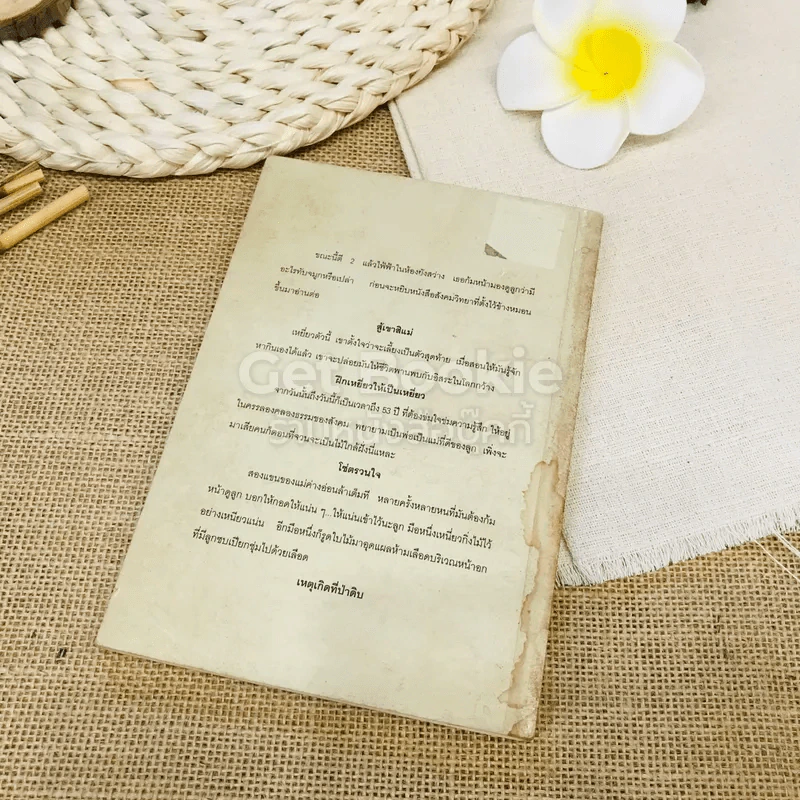 ขณะนี้ตี 2 แล้วไฟฟ้าในห้องยังสว่าง เธอก้มหน้ามองดูลูกว่ามี
อะไรทับจมูกหรือเปล่า ก่อนจะหยิบหนังสือสังคมวิทยาที่ตั้งไว้ข้างหมอน
ขึ้นมาอ่านต่อ
สู้เขาสิแม่
เหยี่ยวตัวนี้ เขาตั้งใจว่าจะเลี้ยงเป็นตัวสุดท้าย เมื่อสอนให้มันรู้จัก
หากินเองได้แล้ว เขาจะปล่อยมันให้ชีวิตพานพบกับอิสระในโลกกว้าง
Get Bookie
ฝึกเหยี่ยวให้เป็นเหยี่ยว
จากวันนั้นถึงวันนี้ก็เป็นเวลาถึง 53 ปี ที่ต้องข่มใจข่มความรู้สึก ให้อยู่
ในครรลองคลองธรรมของสังคม พยายามเป็นพ่อเป็นแม่ที่ดีของลูก เพิ่งจะ
มาเสียคนก็ตอนที่จวนจะเป็นไม้ใกล้ฝั่งนี่แหละ
โซ่ตรวนใจ
สองแขนของแม่ค่างอ่อนล้าเต็มที หลายครั้งหลายหนที่มันต้องก้ม
หน้าดูลูก บอกให้กอดให้แน่น ๆ...ให้แน่นเข้าไว้นะลูก มือหนึ่งเหนี่ยวกิ่งไม้ไว้
อย่างเหนียวแน่น อีกมือหนึ่งก็รูดใบไม้มาอุดแผลห้ามเลือดบริเวณหน้าอก
ที่มีลูกซบเปียกชุ่มไปด้วยเลือด
เหตุเกิดที่ป่าดิบ